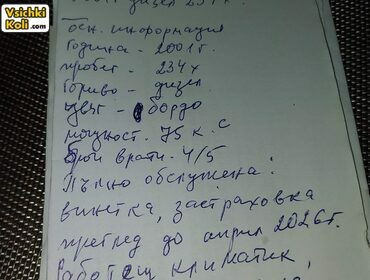 Vsichki
Koli.com
дизел 234 х
Осн. информация
Година - 2001г.
пробег - 234 х
Гориво - дизел
Цвят - бордо
мощност. 75 к.с
брой врати. 4/5
Пълно обслужена:
винетка, застраховка
преглед до април 2026г.
Работещ климатик,